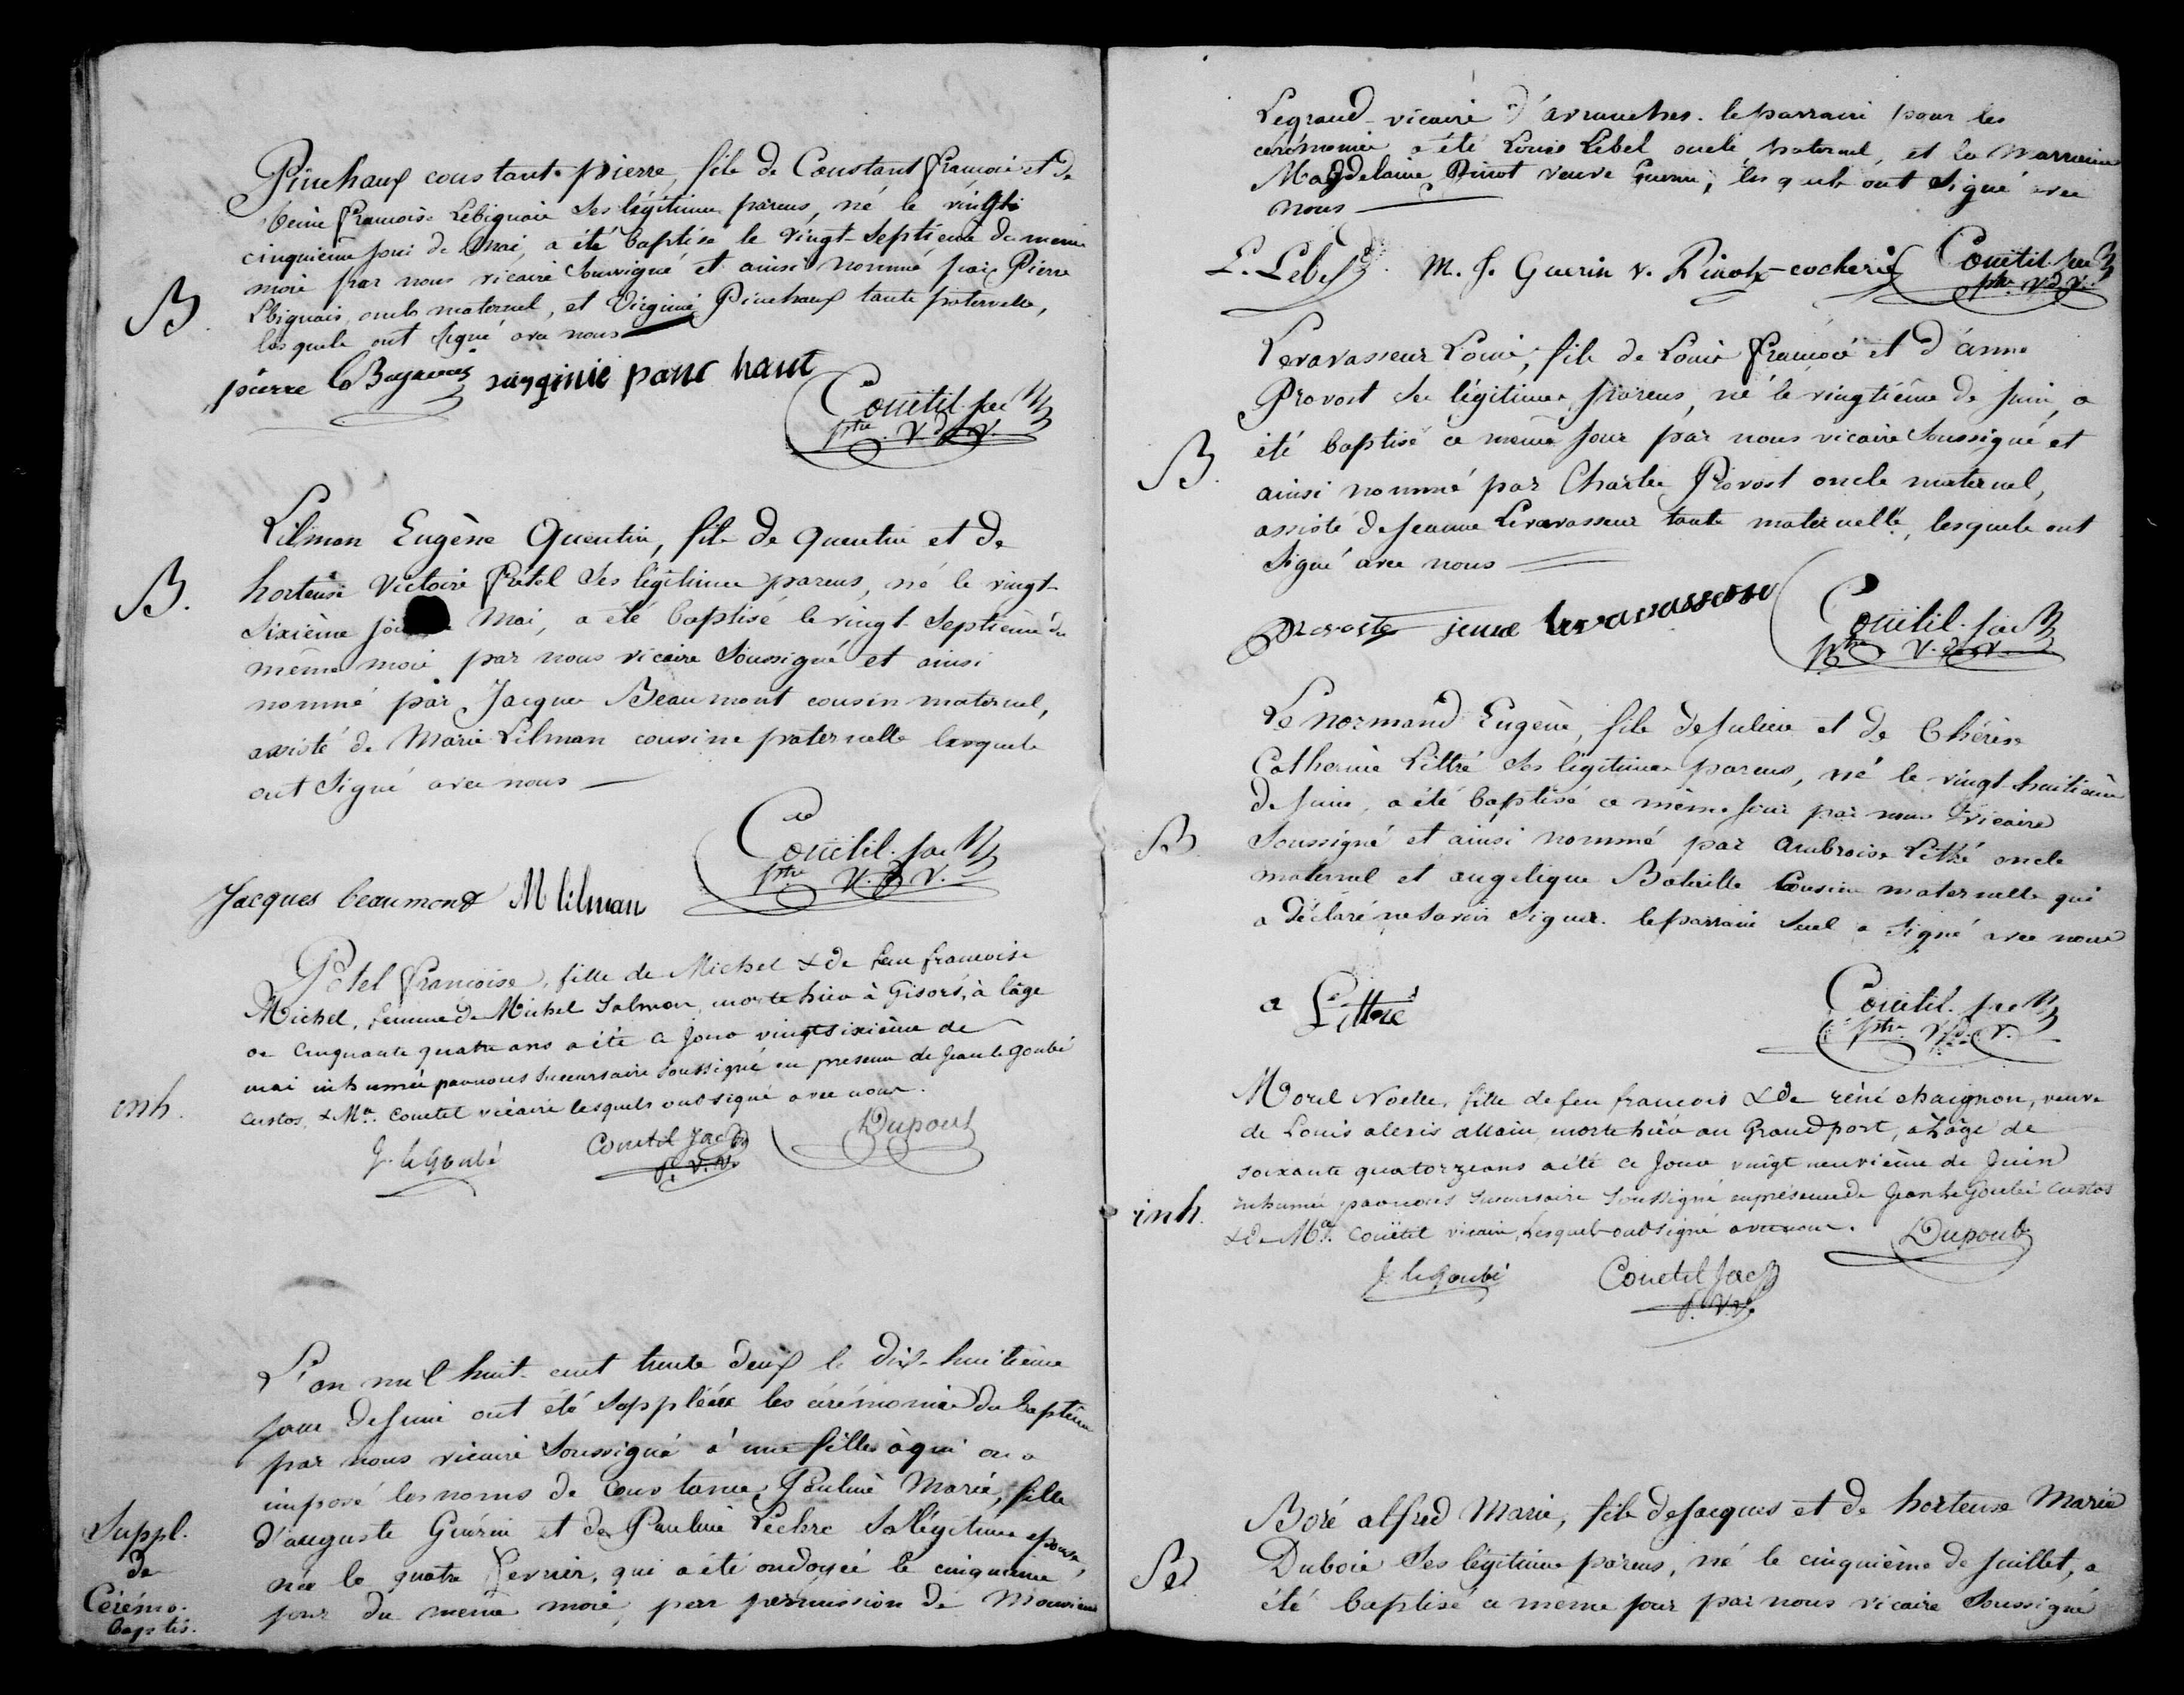 Pinchaux constant pierre, fils de Constant francois et de
reine francoise Lebiguais ses légitimes parens, né le vingt
cinquieme jour de mai, a été baptisé le vingt-septieme du meme
mois par nous vicaire soussigné et ainsi nommé par Pierre
B
Lbiguais, oncle maternel, et Virginie Pinchaux tante paternelle,
lesquels ont signé avec nous
pierre virginie panc haut
Couëtil. jac
ptre. V. d. V.
Lilman Eugène Quentin, fils de quentin et de
B.
hortense Victoire Pétel ses légitimes parens, né le vingt
sixième Mai, a été baptisé le vingt-septième du
même mois par nous vicaire soussigné et ainsi
nommé par Jacques Beaumont cousin maternel,
assisté de Marie Lilman cousine paternelle lesquels
ont signé avec nous
Couëtil. jac
ptre V. d V.
Jacques beaumont M lilman
Potel francoise, fille de Michel & de feu francoise
Michel, femme de Michel Salmon, morte hier à Gisors, à l'âge
de cinquante quatre ans a été ce jour vingt sixième de
mai inhumée par nous succursaire soussigné en presence de Jean le Goubé
inh.
custos, & Mr. Couetil vicaire lesquels ont signé avec nous.
J. le Goubé Couetil Jac Dupont
P. V. V.
L'an mil huit-cent trente deux le dix-huitième
jour de juin ont été suppléées les cérémonies du baptême
par nous vicaire soussigné à une fille à qui on a
imposé les noms de Constance Pauline Marie, fille
Suppl.
d'auguste Guérin et de Pauline Leclerc sa légitime epouse,
de
née le quatre fevrier, qui a été ondoyée le cinquieme
Cérémo.
jour du meme mois, par permission de Monsieur
baptis.
Legrand vicaire d'avranches. le parrain pour les
cérémonies a été Louis Lebel oncle paternel, et la marraine
Magdelaine Pinot veuve Guerin, lesquels ont signé avec
nous
L. Lebel M. J. Guerin v. Pinot-cocherie Couëtil jac
ptre Vd V.
Levavasseur Louis, fils de Louis francois et d'anne
Provost ses légitimes parens, né le vingtième de juin, a
été baptisé ce même jour par nous vicaire soussigné et
B.
ainsi nommé par Charles Provost oncle maternel,
assisté de jeanne Levavasseur tante maternelle, lesquels ont
signé avec nous
Provoste jeane levavasseur Couëtil. jac
ptre V. d. V.
Le normand Eugène, fils de Julien et de Thérèse
Catherine Littré ses légitimes parens, né le vingt-huitième
de juin, a été baptisé ce même jour par nous vicaire
B
soussigné et ainsi nommé par ambroise Littré oncle
maternel et angelique Bataille cousine maternelle qui
a déclaré ne savoir signer. le parrain seul a signé avec nous
a Littré Couëtil. jac
ptre V. d. V.
Morel Noelle, fille de feu francois & de réné chaignon, veuve
de Louis alexis allain, morte hier au Grand port, à l'âge de
soixante quatorze ans a été ce jour vingt neuvième de juin
inhumée par nous succursaire soussigné en présence de Jean le Goubé custos
inh.
& de Mr. Couëtil vicaire, lesquels ont signé avec nous. Dupont
J. le Goubé Couetil Jac
P. V. V.
Boré alfred Marie, fils de Jacques et de hortense Marie
Dubois ses légitimes parens, né le cinquième de juillet, a
été baptisé ce même jour par nous vicaire soussigné